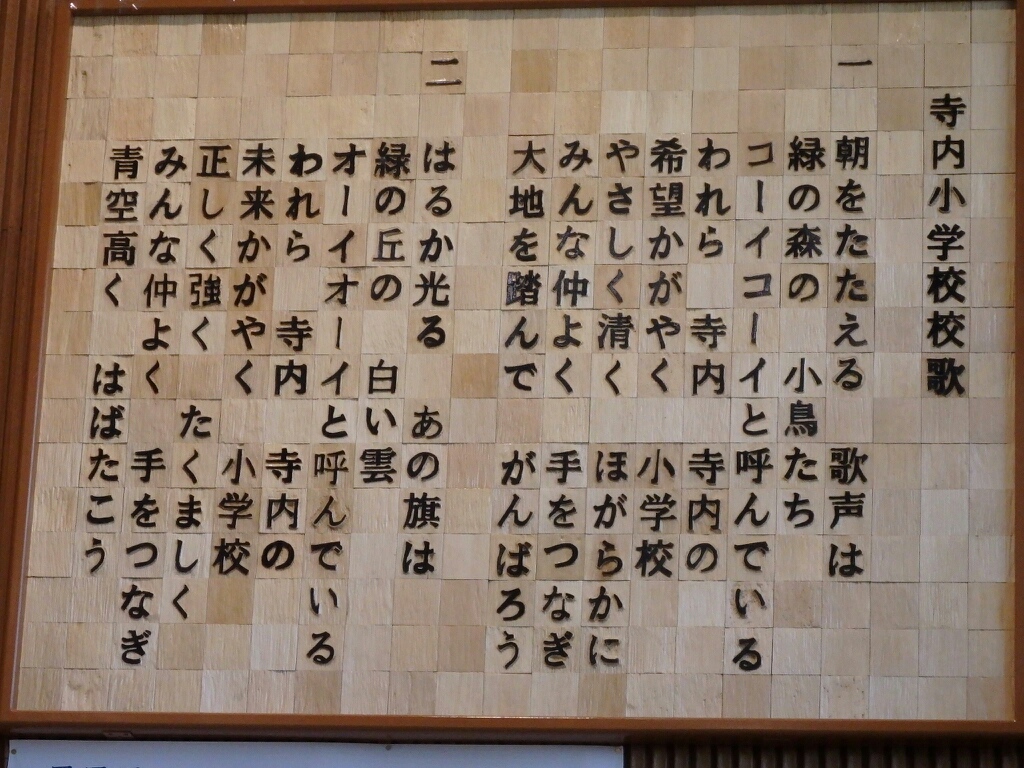 寺内小学校校歌
一
朝をたたえる　歌声は
緑の森の　小鳥たち
コーイコーイと呼んでいる
われら　寺内　寺内の
希望かがやく　小学校
やさしく清く　ほがらかに
みんな仲よく　手をつなぎ
大地を踏んで　がんばろう
二
はるか光る　あの旗は
緑の丘の　白い雲
オーイオーイと呼んでいる
われら　寺内　寺内の
未来かがやく　小学校
正しく強く　たくましく
みんな仲よく　手をつなぎ
青空高く　はばたこう